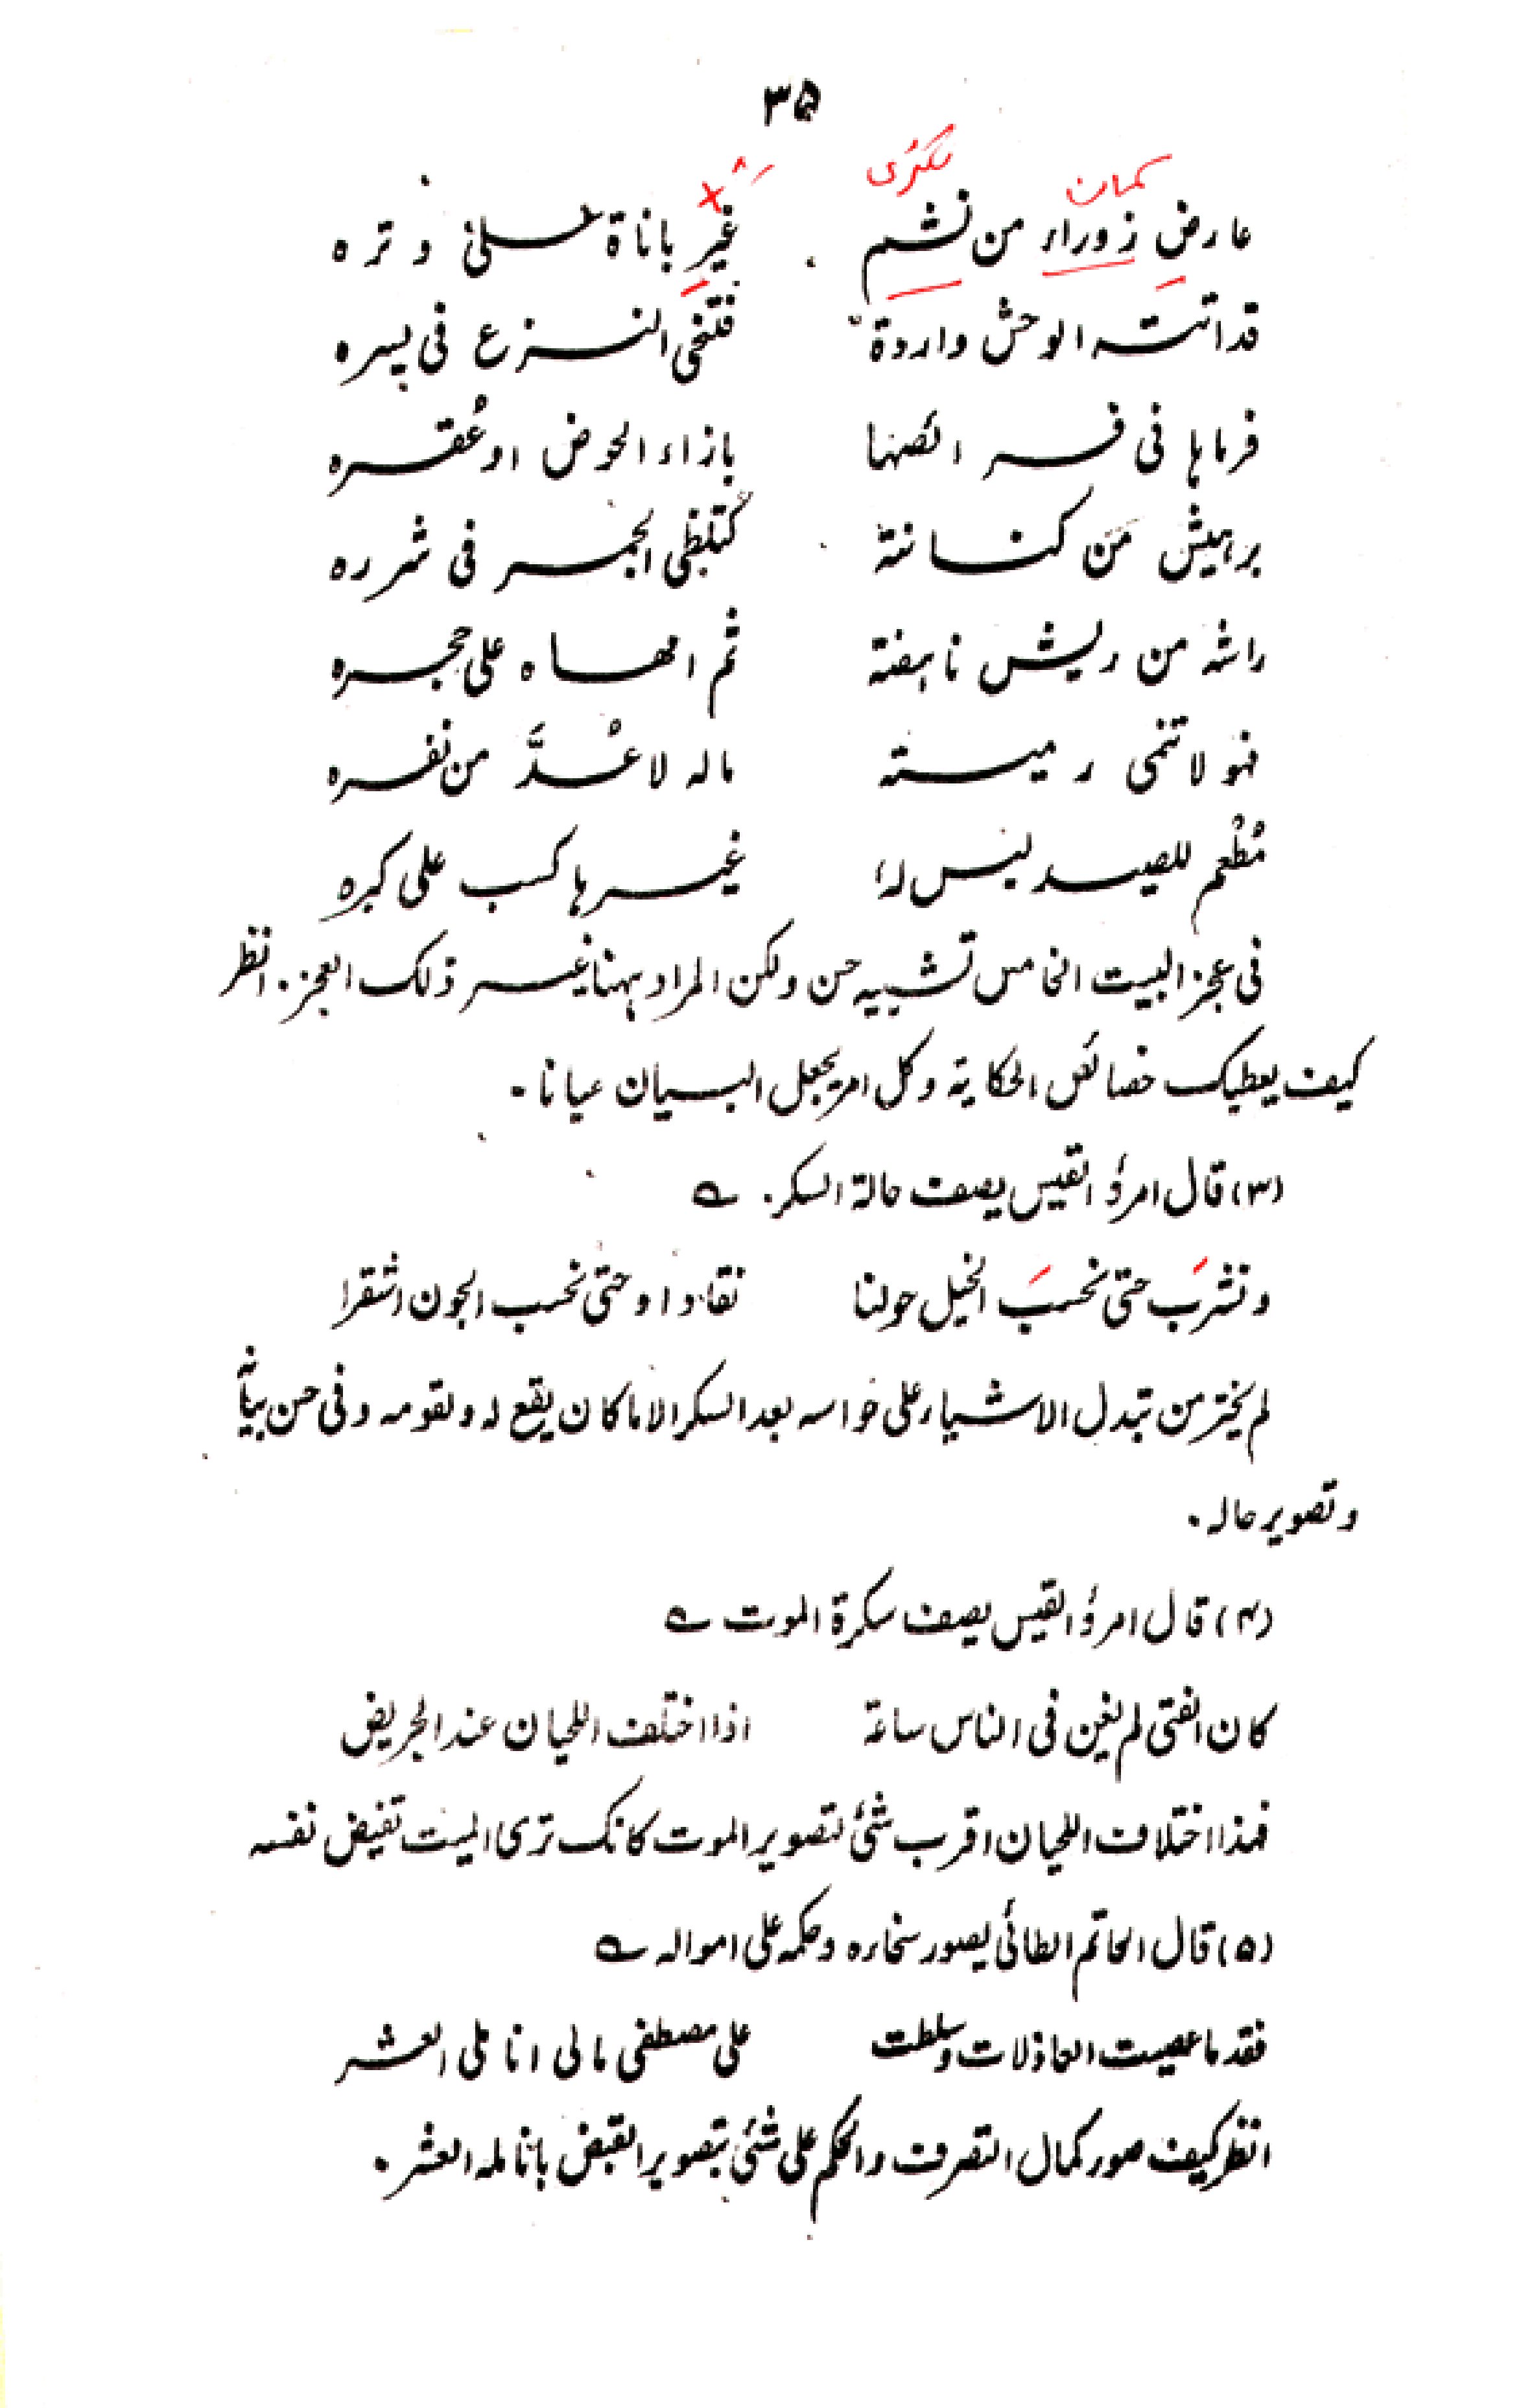 ۳۵
کمان لکڑی
عارض زوراء من نشم غیر باناة علیٰ وتره
قد اتته الوحش واردة فتنحّی النزع فی یسره
فرماها فی فریصها بازاء الحوض او عُقره
برهیش مَن کنانتة کتلظّی الجمر فی شرره
راشه من ریش ناهضة ثم امهاه علی حجره
فهو لا تنمی رمیته ماله لا عُدَّ من نفره
مُطْعم للصید لیس له غیرها کسب علی کبره
فی عجز البیت الخامس تشبیه حسن ولکن المراد ههنا غیر ذلک العجز. انظر
کیف یعطیک خصائص الحکایة وکل امر یجعل البیان عیانا۔
(۳) قال امرؤ القیس یصف حالة السکر۔
ونشرَب حتی نحسبَ الخیل حولنا نقادا وحتی نحسب الجون اشقرا
لم یختر من تبدل الاشیاء علی حواسه بعد السکر الا ما کان یقع له ولقومه وفی حسن بیان
وتصویر حاله۔
(۴) قال امرؤ القیس یصف سکرة الموت
کان الفتی لم یغن فی الناس ساعة اذا اختلف اللحیان عند الجریض
فهذا اختلاف اللحیان اقرب شئ لتصویر الموت کانک تری المیت تفیض نفسه
(۵) قال الحاتم الطائی یصور سخاره وحکمه علی امواله
فقدما عصیت العاذلات وسلطت علی مصطفی مالی اناملی العشر
انظر کیف صور کمال التصرف والحکم علی شئ بتصویر القبض بانامله العشر۔